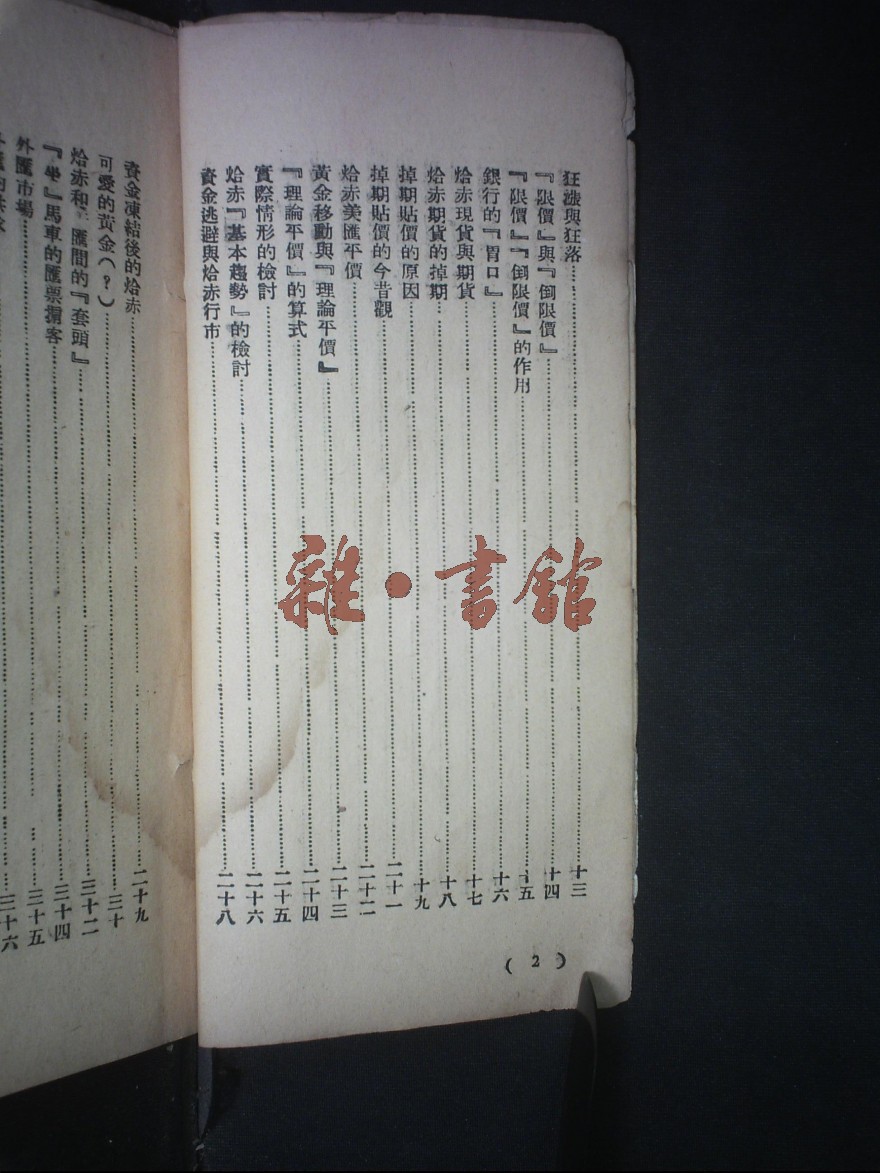 狂漲與狂落……十三
『限價』與『倒限價』……十四
『限價』『倒限價』的作用……十五
銀行的『胃口』……十六
烚赤現貨與期貨……十七
烚赤期貨的掉期……十八
掉期貼價的原因……十九
掉期貼價的今昔觀……二十一
烚赤美匯平價……二十二
黃金移動與『理論平價』……二十三
『理論平價』的算式……二十四
實際情形的檢討……二十五
烚赤『基本趨勢』的檢討……二十六
資金逃避與烚赤行市……二十八
(2)
資金凍結後的烚赤……二十九
可愛的黃金(?)……三十
烚赤和 匯間的『套頭』……三十二
『坐』馬車的匯票掮客……三十四
外匯市場……三十五
三十六
雜·書館